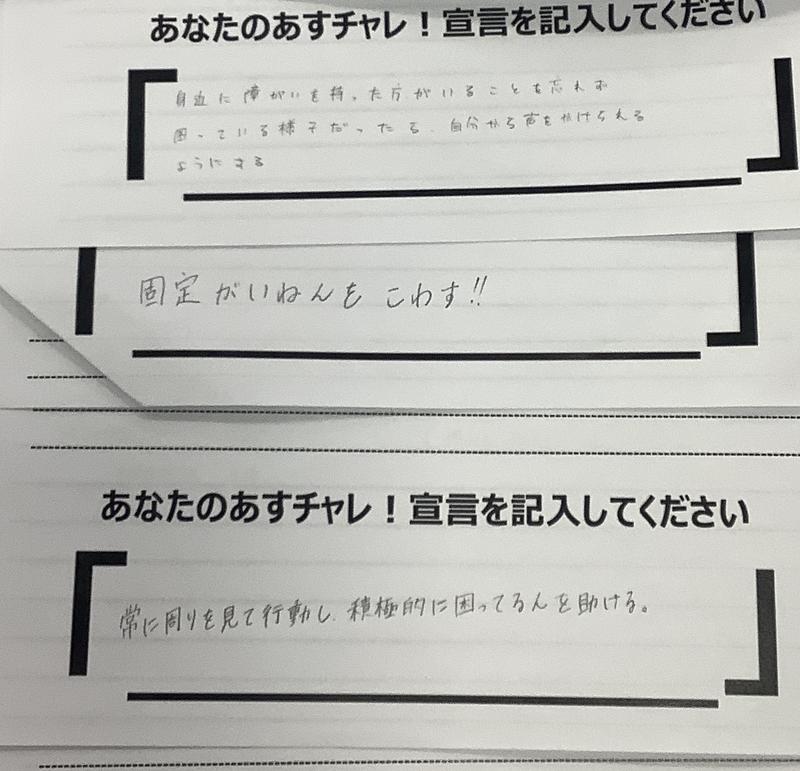 あなたのあすチャレ！宣言を記入してください
身近に障がいを持った方がいることを忘れず
困っている様子だったら、自分から声をかけられる
ようにする
固定がいねんを こわす!!
あなたのあすチャレ！宣言を記入してください
常に周りを見て行動し、積極的に困ってる人を助ける。